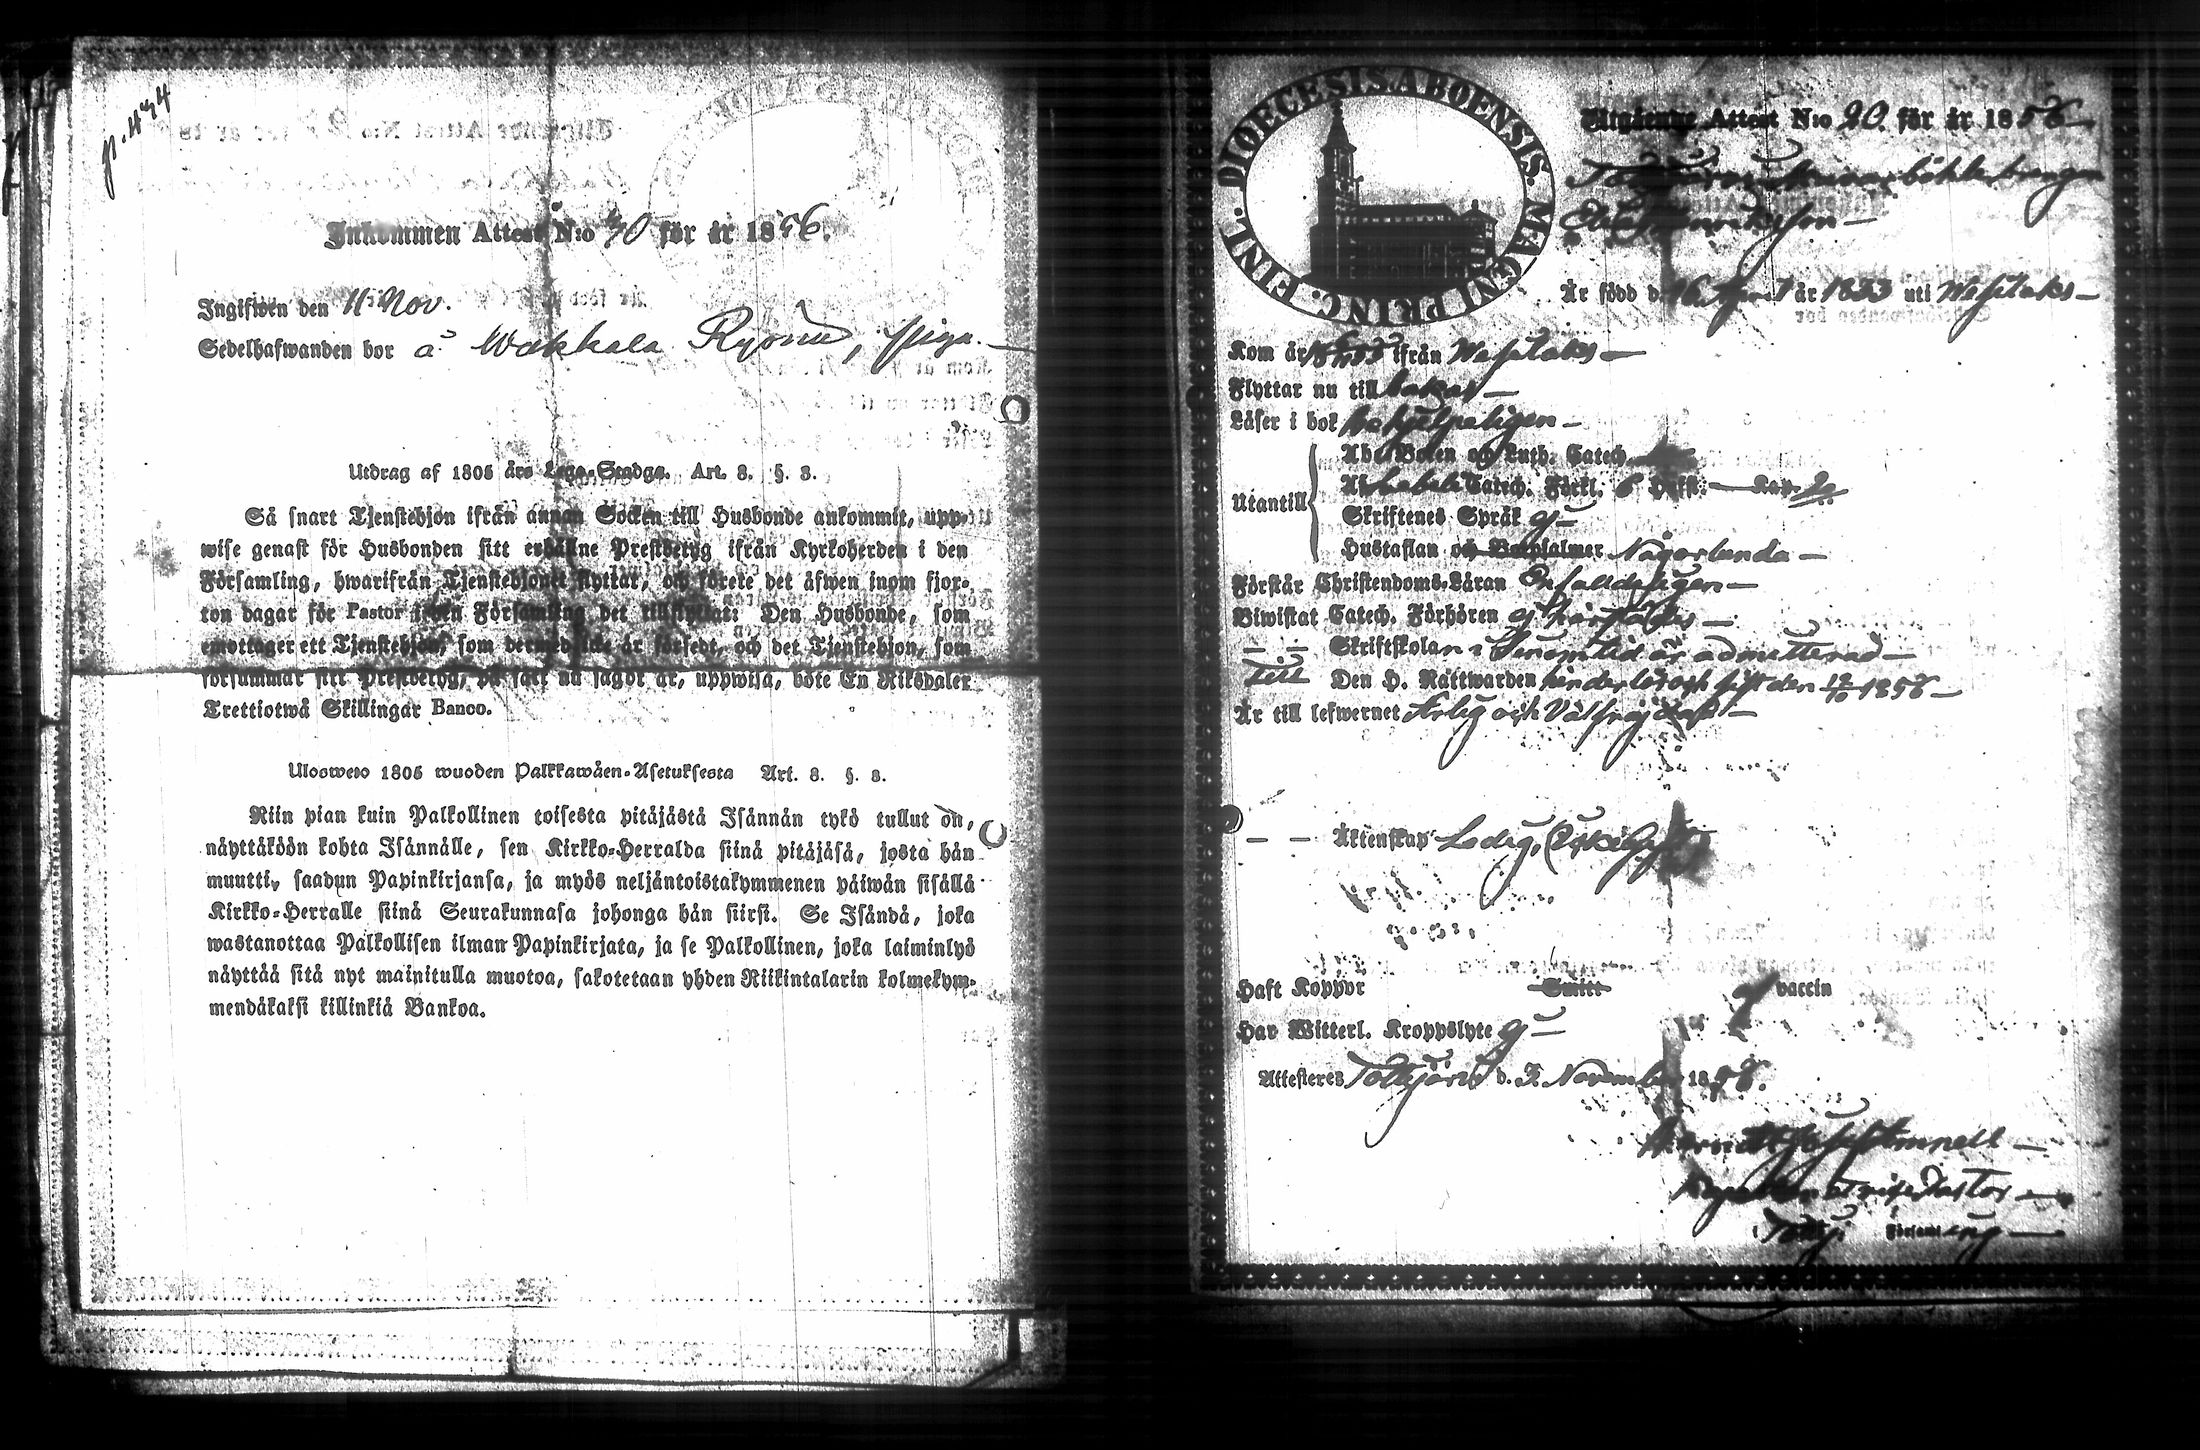 p. 434
Inkommen Attest N:o 40 för år 1856.
Ingifwen den 11 Nov.
Sedelhafwanden bor å Wakkala Ryönä, piga.
Utdrag af 1805 års Lego-Stadga. Art. 8. §. 3.
Så snart Tjenstehjon ifrån annan Socken till Husbonde ankommit, upp-
wise genast för Husbonden sitt erhållne Prestbetyg ifrån Kyrkoherden i den
Församling, hwarifrån Tjenstehjonet flyttat, och förete det äfwen inom fjor-
ton dagar för Pastor i den Församling det tillflyttat: Den Husbonde, som
emottager ett Tjenstehjon, som dermed icke är försedt, och det Tjenstehjon, som
försummar sitt Prestbetyg, på sätt nu sagdt är, uppwisa, böte En Riksdaler
Trettiotwå Skillingar Banco.
Uloswеto 1805 wuoden Palkkawäen-Asetuksesta Art. 8. §. 3.
Niin pian kuin Palkollinen toisesta pitäjästä Isännän tykö tullut on,
näyttäköön kohta Isännälle, sen Kirkko-Herralda siinä pitäjäsä, josta hän
muutti, saadun Papinkirjansa, ja myös neljäntoistakymmenen päiwän sisällä
Kirkko-Herralle siinä Seurakunnasa johonga hän siirsi. Se Isändä, joka
wastanottaa Palkollisen ilman Papinkirjata, ja se Palkollinen, joka laiminlyö
näyttää sitä nyt mainitulla muotoa, sakotetaan yhden Riikintalarin kolmekym-
mendäkaksi killinkiä Bankoa.
DIOECESIS ABOENSIS. MAGNI PRINC. FINL.
Utgående Attest N:o 20. för år 1856
Är född d. 16 April år 1833 uti Westaks
Kom år ifrån Westaks
Flyttar nu till
Läser i bok behjelpeligen
Utantill
Abc Boken och Luth. Catech.
Catech. Förkl. 6 Kap.
Skriftenes Språk ej
Hustaflan och Botpsalmer Någorlunda
Förstår Christendoms-Läran Enfalldeligen
Biwistat Catech. Förhören ej härstädes
Skriftskolan i Sinom tid är admitterad
Till Den H. Nattwarden och sist den 12/10 1856
Är till lefwernet Ärlig och Välfräjdad
Äktenskap Ledig,
Haft Koppor Smitt ej vaccin
Har Witterl. Kroppslyte ej
Attesteres Tottijärvi d. 7 November 1856.
Kapellan Pastor
i Tottij. Församling